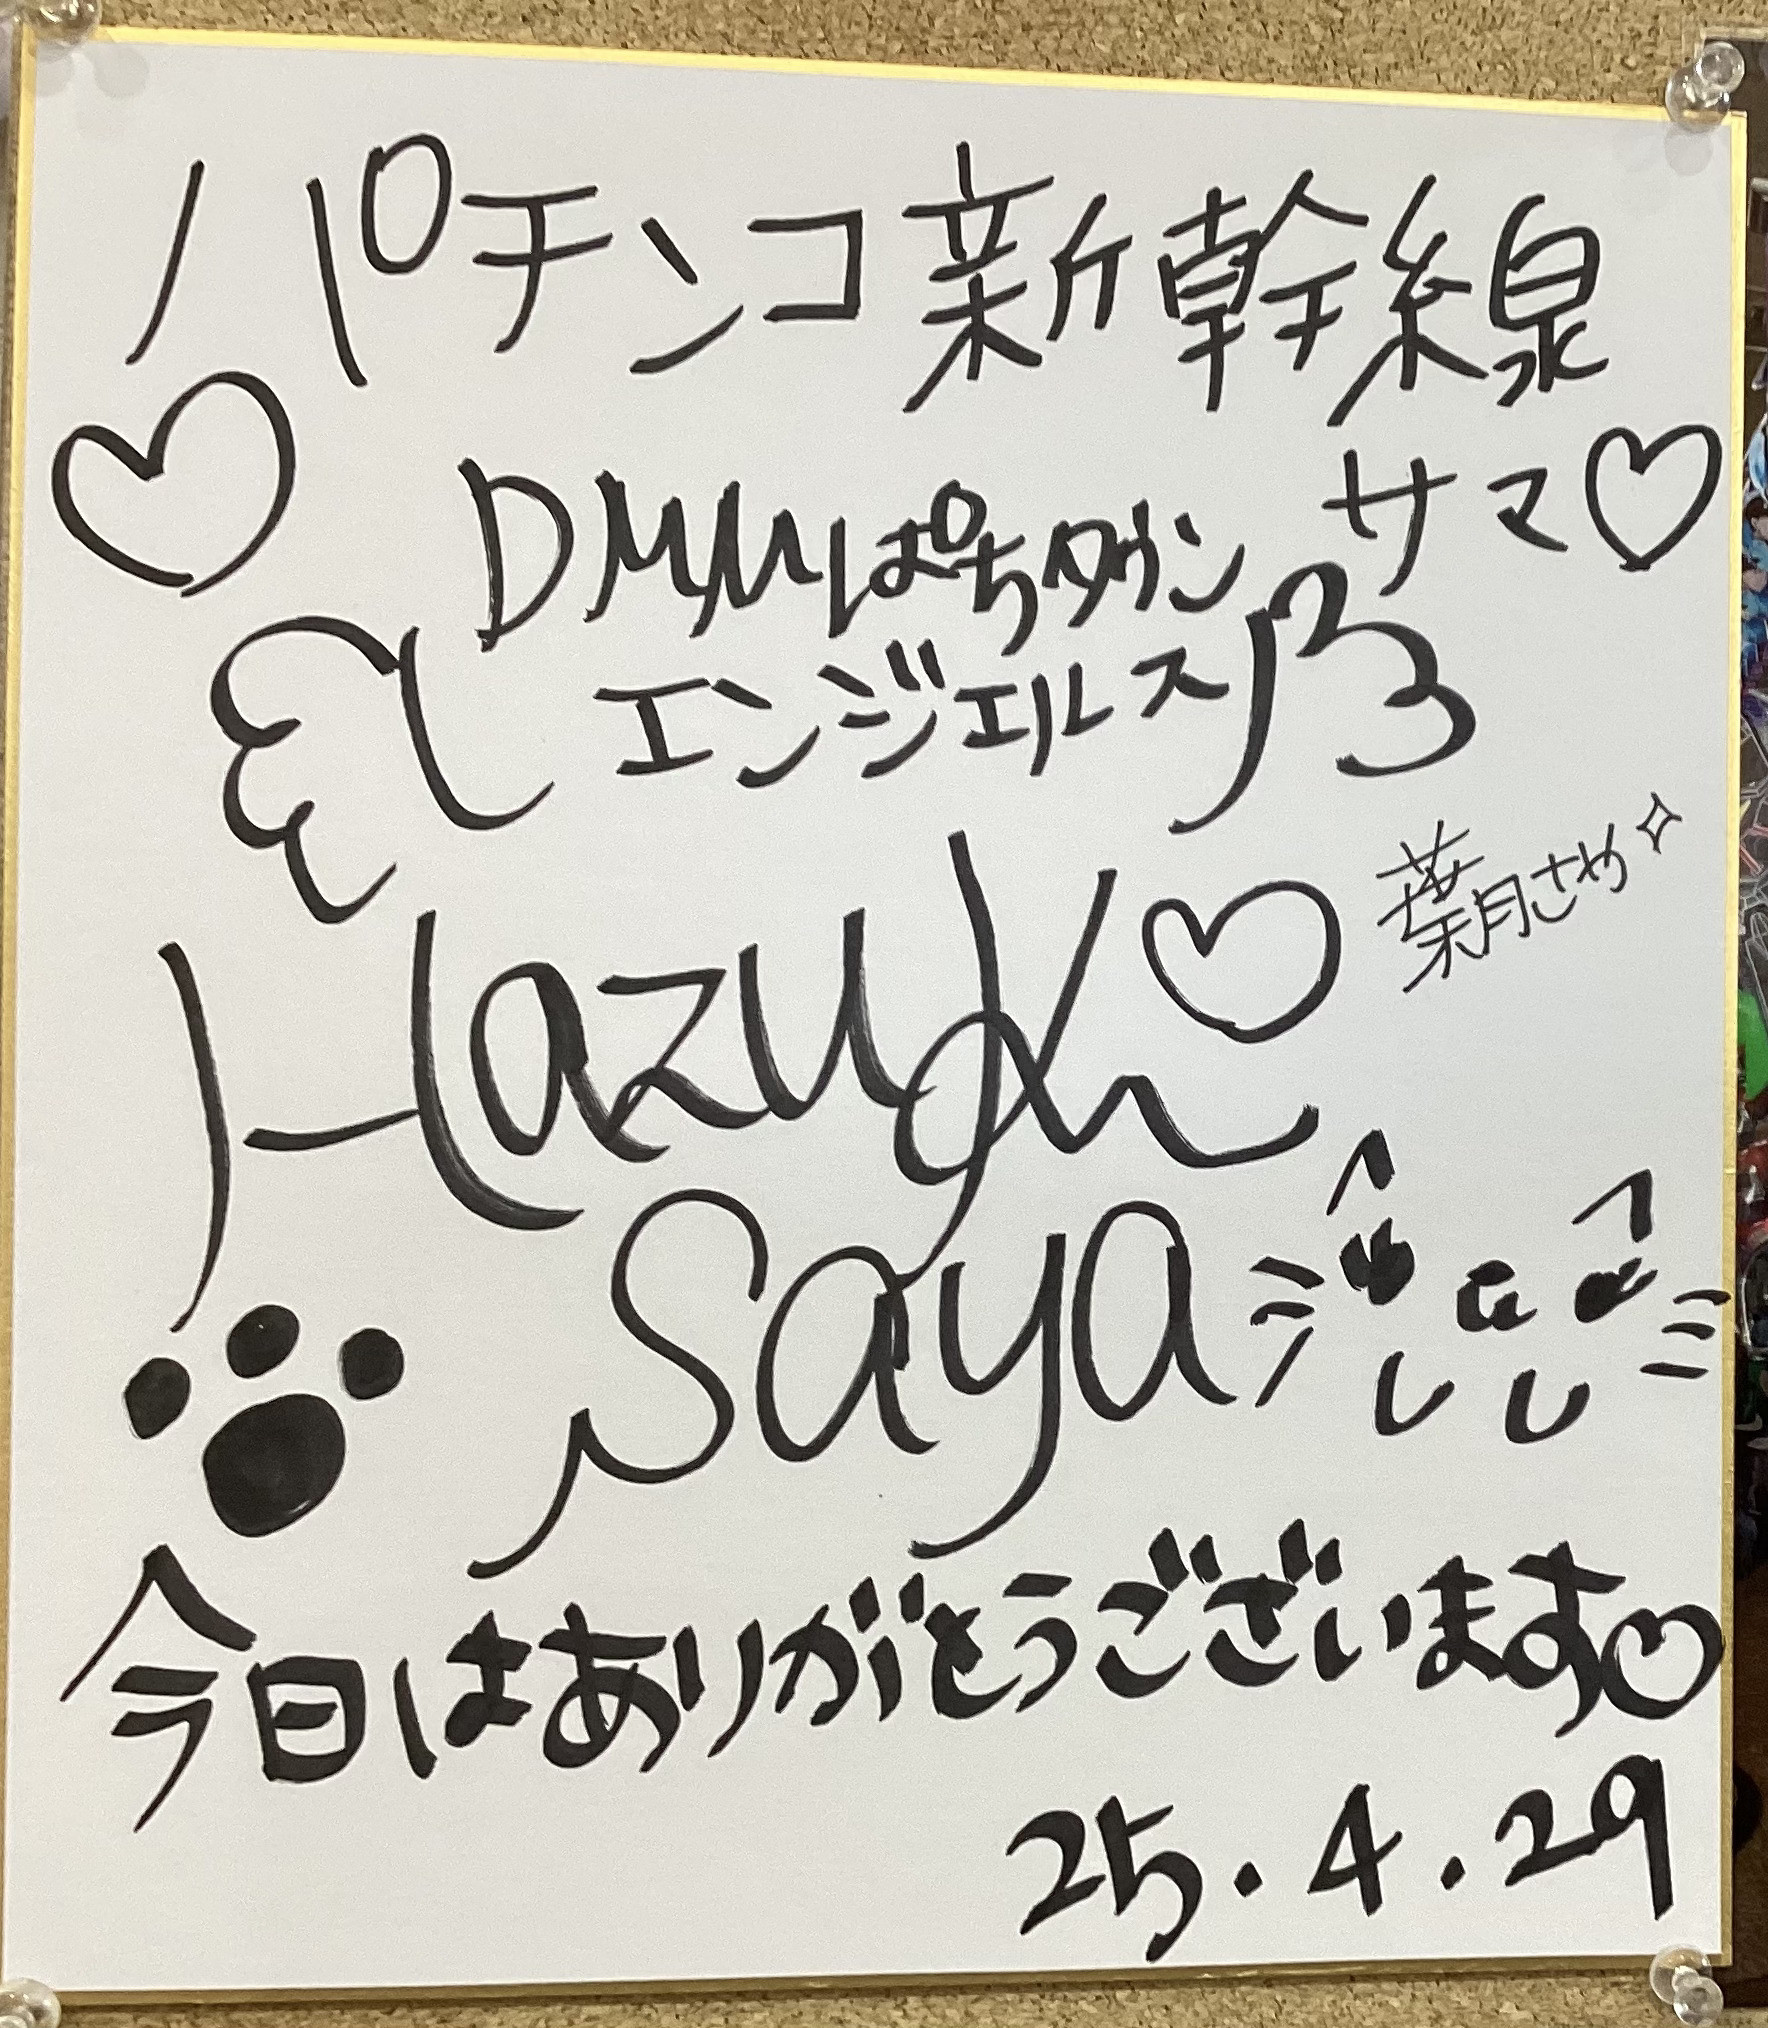 パチンコ新幹線
サマ♡
DMMぱちタウン
エンジェルス
葉月さや
Hazuki
Saya
今日はありがとうございます♡
25.4.29